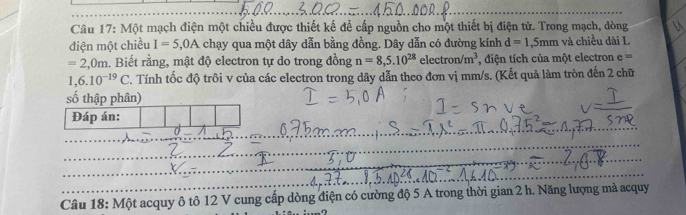 500.300 = 150.000 J
Câu 17: Một mạch điện một chiều được thiết kế để cấp nguồn cho một thiết bị điện tử. Trong mạch, dòng
điện một chiều I = 5,0A chạy qua một dây dẫn bằng đồng. Dây dẫn có đường kính d = 1,5mm và chiều dài L
= 2,0m. Biết rằng, mật độ electron tự do trong đồng n = 8,5.10²⁸ electron/m³, điện tích của một electron e =
1,6.10⁻¹⁹ C. Tính tốc độ trôi v của các electron trong dây dẫn theo đơn vị mm/s. (Kết quả làm tròn đến 2 chữ
số thập phân)
I = 5,0 A ; I = Snve v = I/Sne
Đáp án:
r = d/2 = 1,5/2 = 0,75mm, S = π.r² = π.0,75² ≈ 1,77
v = 5,0 / 1,77 . 8,5.10²⁸ .10 1,6.10⁻¹⁹ ≈ 2,08
Câu 18: Một acquy ô tô 12 V cung cấp dòng điện có cường độ 5 A trong thời gian 2 h. Năng lượng mà acquy